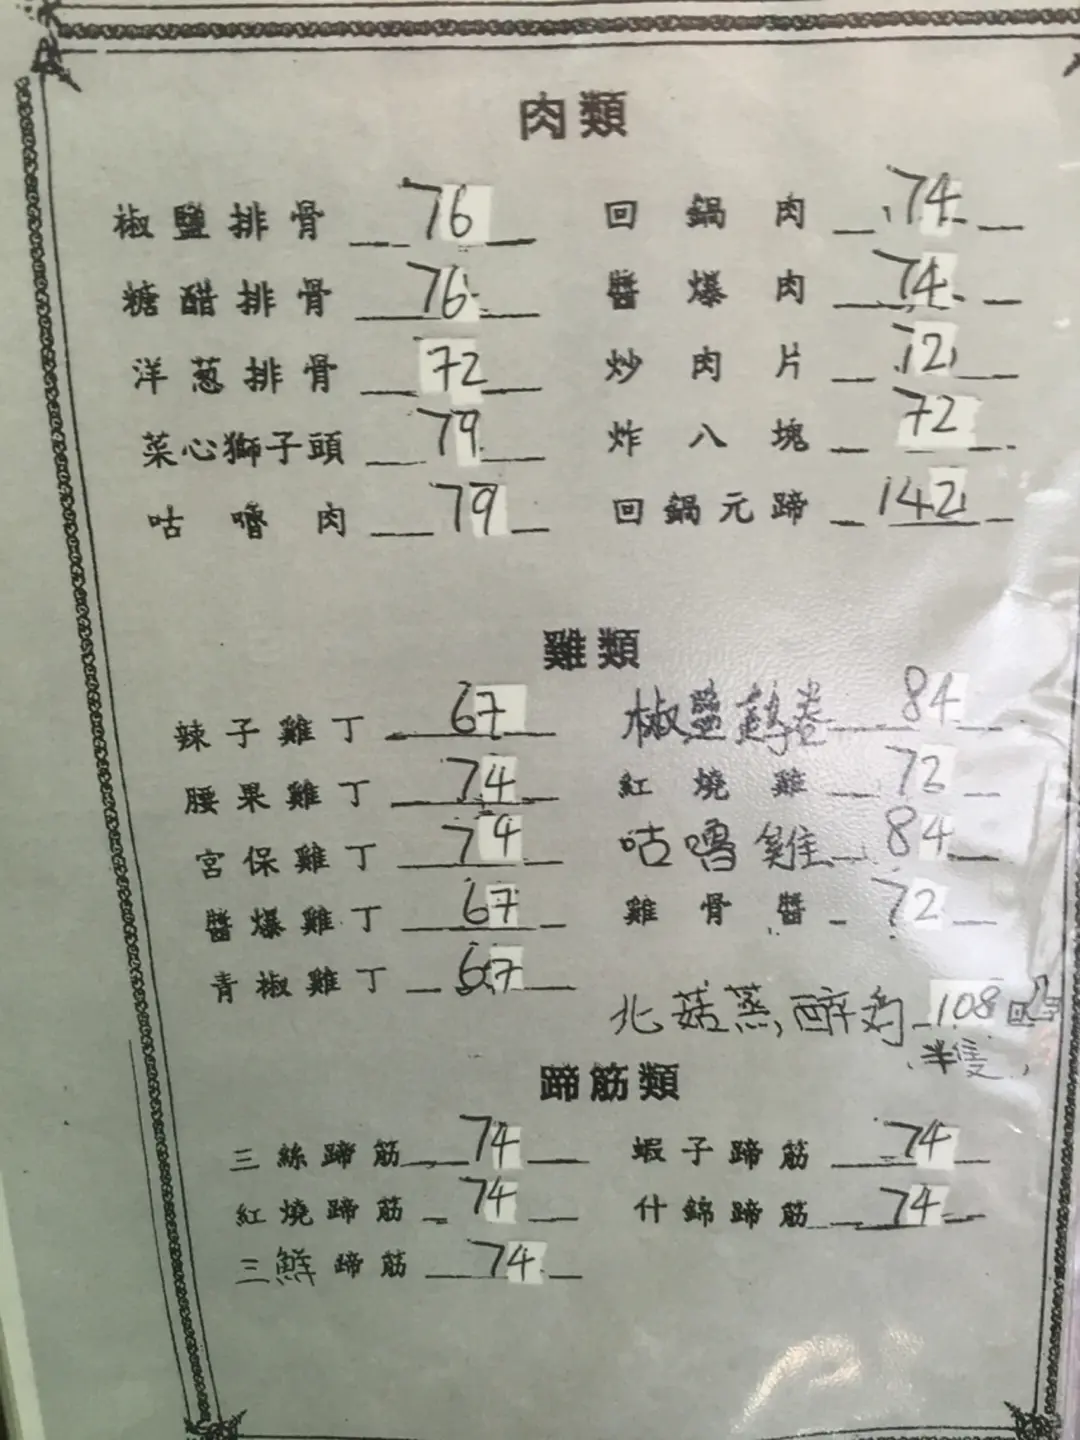 肉類
椒鹽排骨 76 回鍋肉 74
糖醋排骨 76 醬爆肉 74
洋葱排骨 72 炒肉片 72
菜心獅子頭 79 炸八塊 72
咕嚕肉 79 回鍋元蹄 142
雞類
辣子雞丁 67 椒鹽 卷 84
腰果雞丁 74 紅燒雞 72
宮保雞丁 74 咕嚕雞 84
醬爆雞丁 67 雞骨醬 72
青椒雞丁 67
北菇蒸醉 108
半隻
蹄筋類
三絲蹄筋 74 蝦子蹄筋 74
紅燒蹄筋 74 什錦蹄筋 74
三鮮蹄筋 74